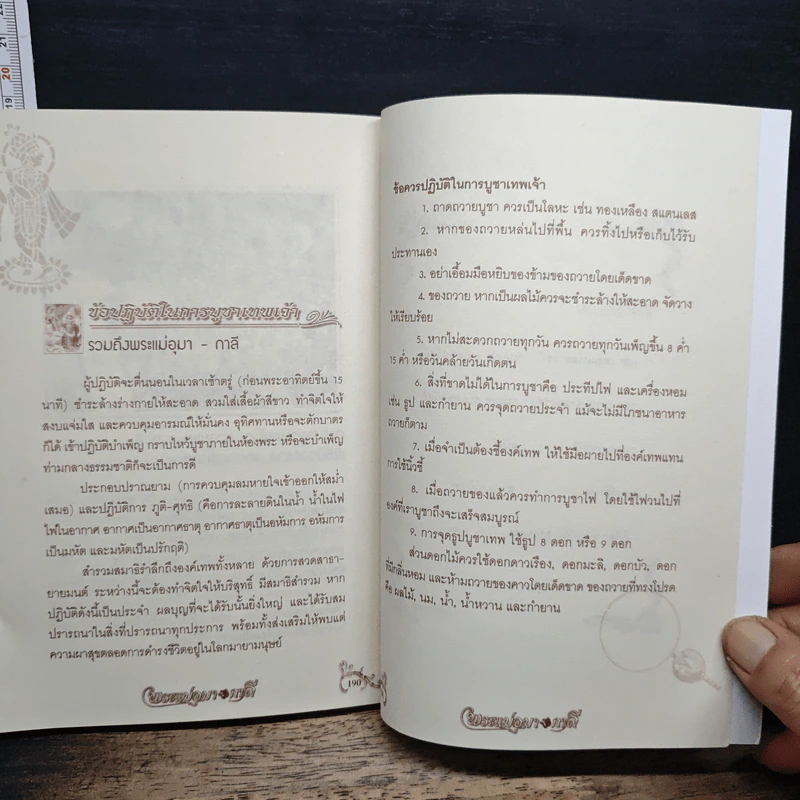 ข้อปฏิบัติในการบูชาเทพเจ้า
รวมถึงพระแม่อุมา - กาลี
ผู้ปฏิบัติจะตื่นนอนในเวลาเช้าตรู่ (ก่อนพระอาทิตย์ขึ้น 15
นาที) ชำระล้างร่างกายให้สะอาด สวมใส่เสื้อผ้าสีขาว ทำจิตใจให้
สงบแจ่มใส และควบคุมอารมณ์ให้มั่นคง อุทิศทานหรือจะตักบาตร
ก็ได้ เข้าปฏิบัติบำเพ็ญ กราบไหว้บูชาภายในห้องพระ หรือจะบำเพ็ญ
ท่ามกลางธรรมชาติก็จะเป็นการดี
ประกอบปราณยาม (การควบคุมลมหายใจเข้าออกให้สม่ำ
เสมอ) และปฏิบัติการ ภูติ-ศุทธิ (คือการละลายดินในน้ำ น้ำในไฟ
ไฟในอากาศ อากาศเป็นอากาศธาตุ อากาศธาตุเป็นอหังการ อหังการ
เป็นมหัต และมหัตเป็นปรักฤติ)
สำรวมสมาธิรำลึกถึงองค์เทพทั้งหลาย ด้วยการสวดสาธ-
ยายมนต์ ระหว่างนี้จะต้องทำจิตใจให้บริสุทธิ์ มีสมาธิสำรวม หาก
ปฏิบัติดังนี้เป็นประจำ ผลบุญที่จะได้รับนั้นยิ่งใหญ่ และได้รับสม
ปรารถนาในสิ่งที่ปรารถนาทุกประการ พร้อมทั้งส่งเสริมให้พบแต่
ความผาสุขตลอดการดำรงชีวิตอยู่ในโลกมายามนุษย์
พระแม่อุมา กาลี
190
ข้อควรปฏิบัติในการบูชาเทพเจ้า
1. ถาดถวายบูชา ควรเป็นโลหะ เช่น ทองเหลือง สแตนเลส
2. หากของถวายหล่นไปที่พื้น ควรทิ้งไปหรือเก็บไว้รับ
ประทานเอง
3. อย่าเอื้อมมือหยิบของข้ามของถวายโดยเด็ดขาด
4. ของถวาย หากเป็นผลไม้ควรจะชำระล้างให้สะอาด จัดวาง
ให้เรียบร้อย
5. หากไม่สะดวกถวายทุกวัน ควรถวายทุกวันเพ็ญขึ้น 8 ค่ำ
15 ค่ำ หรือวันคล้ายวันเกิดตน
6. สิ่งที่ขาดไม่ได้ในการบูชาคือ ประทีปไฟ และเครื่องหอม
เช่น ธูป และกำยาน ควรจุดถวายประจำ แม้จะไม่มีโภชนาอาหาร
ถวายก็ตาม
7. เมื่อจำเป็นต้องชี้องค์เทพ ให้ใช้มือผายไปที่องค์เทพแทน
การใช้นิ้วชี้
8. เมื่อถวายของแล้วควรทำการบูชาไฟ โดยใช้ไฟวนไปที่
องค์ที่เราบูชาถึงจะเสร็จสมบูรณ์
9. การจุดธูปบูชาเทพ ใช้ธูป 8 ดอก หรือ 9 ดอก
ส่วนดอกไม้ควรใช้ดอกดาวเรือง, ดอกมะลิ, ดอกบัว, ดอก
ที่มีกลิ่นหอม และห้ามถวายของคาวโดยเด็ดขาด ของถวายที่ทรงโปรด
คือ ผลไม้, นม, น้ำ, น้ำหวาน และกำยาน
พระแม่อุมา กาลี
19
20
21
22